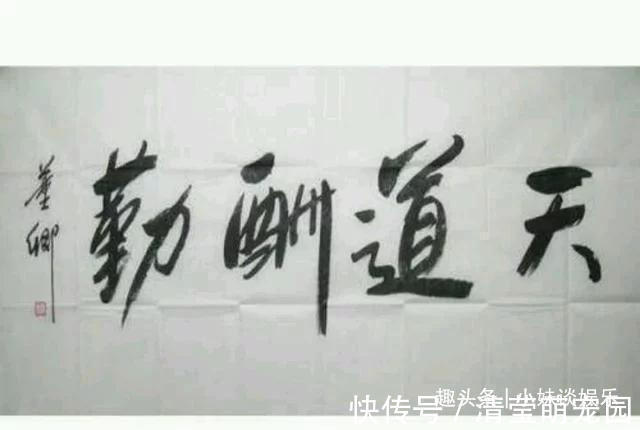 天道酬勤
董卿
趣头条丨小妹谈娱乐
快传号/清莹萌宠园